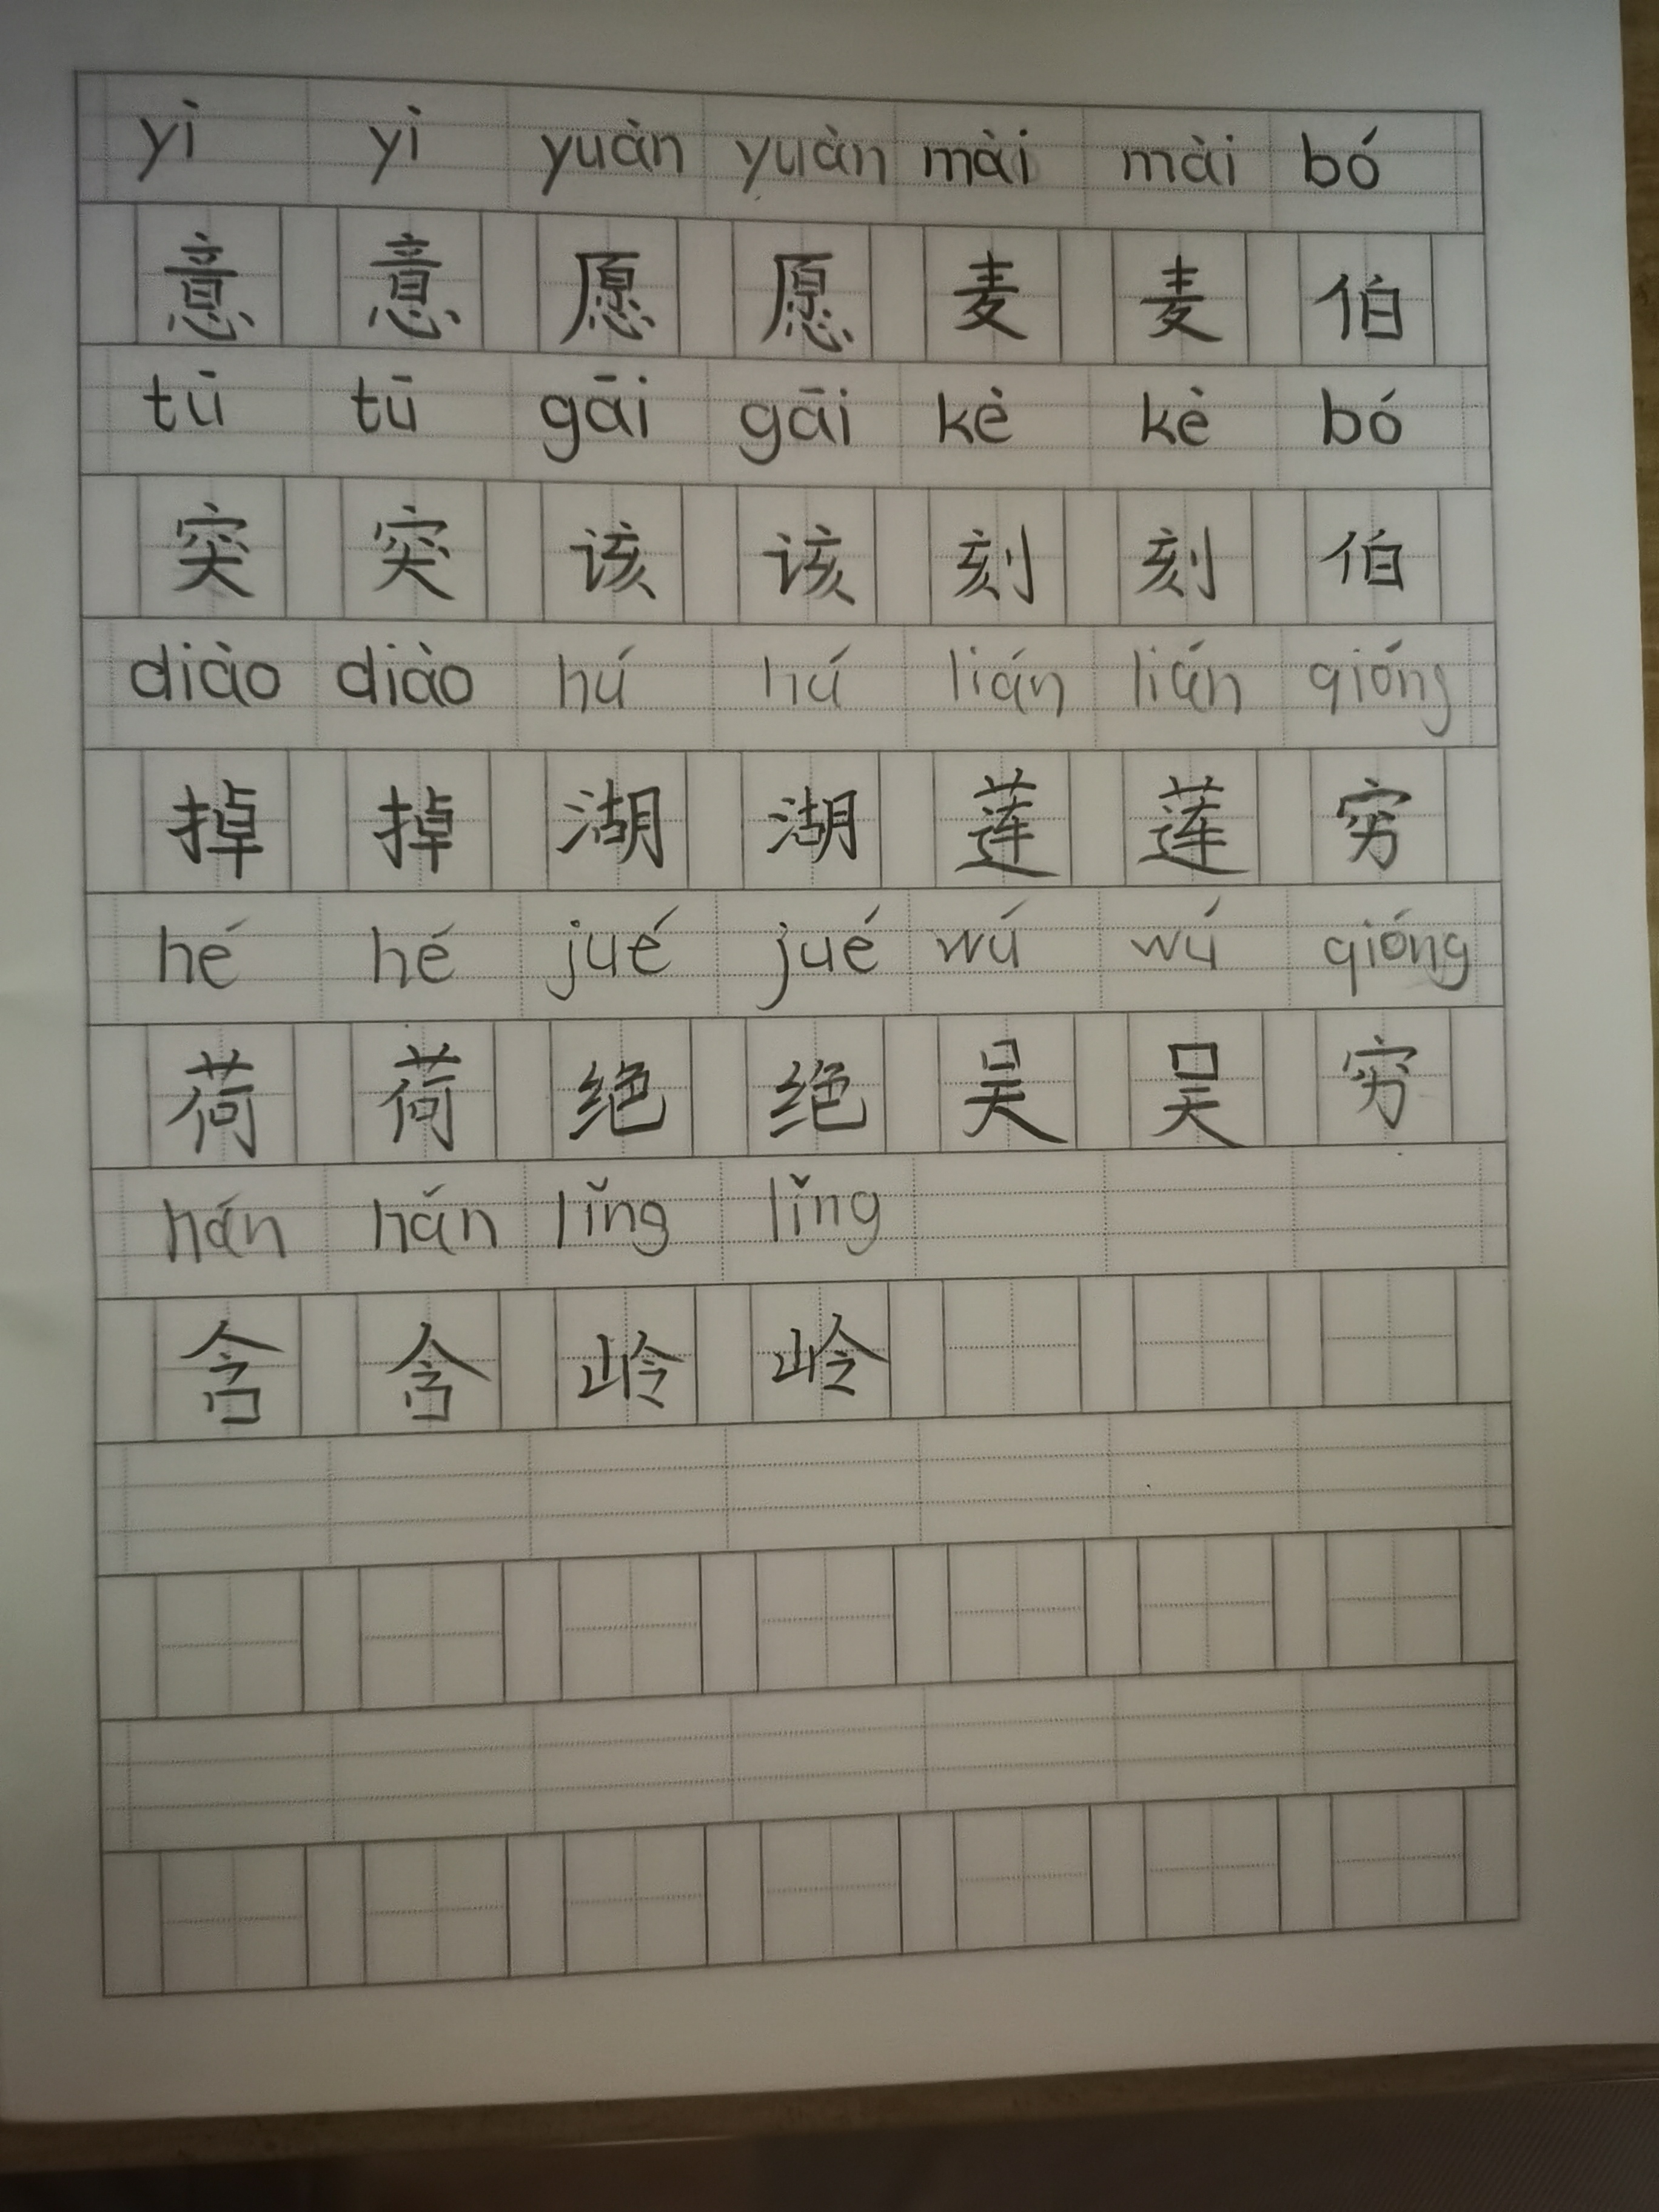 yì yì yuàn yuàn mài mài bó
意 意 愿 愿 麦 麦 伯
tū tū gāi gāi kè kè bó
突 突 该 该 刻 刻 伯
diào diào hú hú lián lián qióng
掉 掉 湖 湖 莲 莲 穷
hé hé jué jué wú wú qióng
荷 荷 绝 绝 吴 吴 穷
hán hán lǐng lǐng
含 含 岭 岭